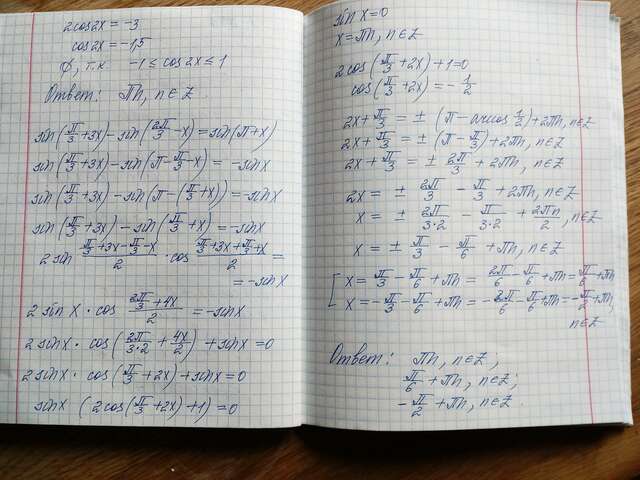 2cos2x = -3
cos2x = -1,5
∅, т.к. -1 ≤ cos2x ≤ 1
Ответ: πn, n∈Z.
sin(π/3+3x) - sin(2π/3-x) = sin(π+x)
sin(π/3+3x) - sin(π-π/3-x) = -sinx
sin(π/3+3x) - sin(π-(π/3+x)) = -sinx
sin(π/3+3x) - sin(π/3+x) = -sinx
2sin (π/3+3x-π/3-x)/2 · cos (π/3+3x+π/3+x)/2 =
= -sinx
2sinx · cos (2π/3+4x)/2 = -sinx
2sinx · cos(2π/(3·2) + 4x/2) + sinx = 0
2sinx · cos(π/3+2x) + sinx = 0
sinx (2cos(π/3+2x)+1) = 0
sinx = 0
x = πn, n∈Z
2cos(π/3+2x)+1=0
cos(π/3+2x) = -1/2
2x+π/3 = ±(π-arccos 1/2)+2πn, n∈Z
2x+π/3 = ±(π-π/3)+2πn, n∈Z
2x+π/3 = ± 2π/3 + 2πn, n∈Z
2x = ± 2π/3 - π/3 + 2πn, n∈Z
x = ± 2π/(3·2) - π/(3·2) + 2πn/2, n∈Z
x = ± π/3 - π/6 + πn, n∈Z
x = π/3 - π/6 + πn = 2π/6 - π/6 + πn = π/6 + πn
x = -π/3 - π/6 + πn = -2π/6 - π/6 + πn = -π/2 + πn,
n∈Z
Ответ: πn, n∈Z;
π/6 + πn, n∈Z;
-π/2 + πn, n∈Z.